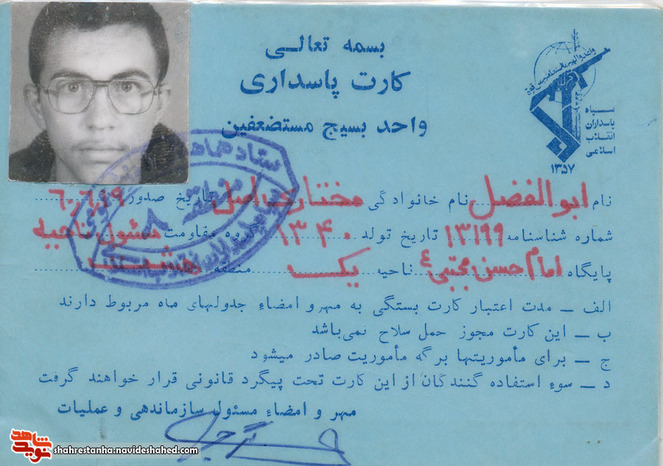 بسمه تعالی
کارت پاسداری
واحد بسیج مستضعفین
سپاه
پاسداران
انقلاب
اسلامی
۱۳۵۷
نام ابوالفضل نام خانوادگی مختاری تاریخ صدور
شماره شناسنامه ۱۳۱۹۹ تاریخ تولد ۱۳۴۰ گروه مقاومت
پایگاه امام حسن مجتبی ع ناحیه یک منطقه
الف ـ مدت اعتبار کارت بستگی به مهر و امضاء جدولهای ماه مربوط دارند
ب ـ این کارت مجوز حمل سلاح نمی‌باشد
ج ـ برای مأموریتها برگه مأموریت صادر میشود
د ـ سوء استفاده کنندگان از این کارت تحت پیگرد قانونی قرار خواهند گرفت
مهر و امضاء مسئول سازماندهی و عملیات
نوید شاهد
shahrestanha.navideshahed.com